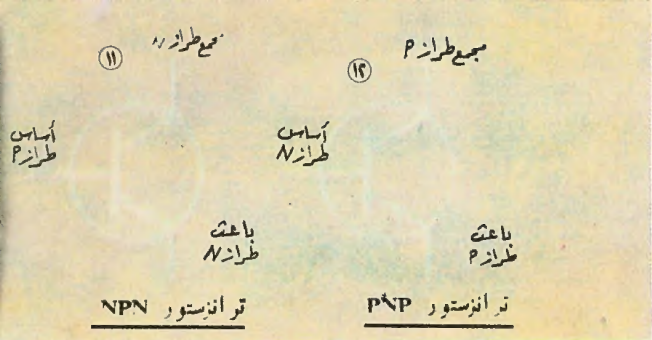 مجمع طراز N
١١
أساس
طراز P
باعث
طراز N
ترانزستور NPN
مجمع طراز P
١٢
أساس
طراز N
باعث
طراز P
ترانزستور PNP